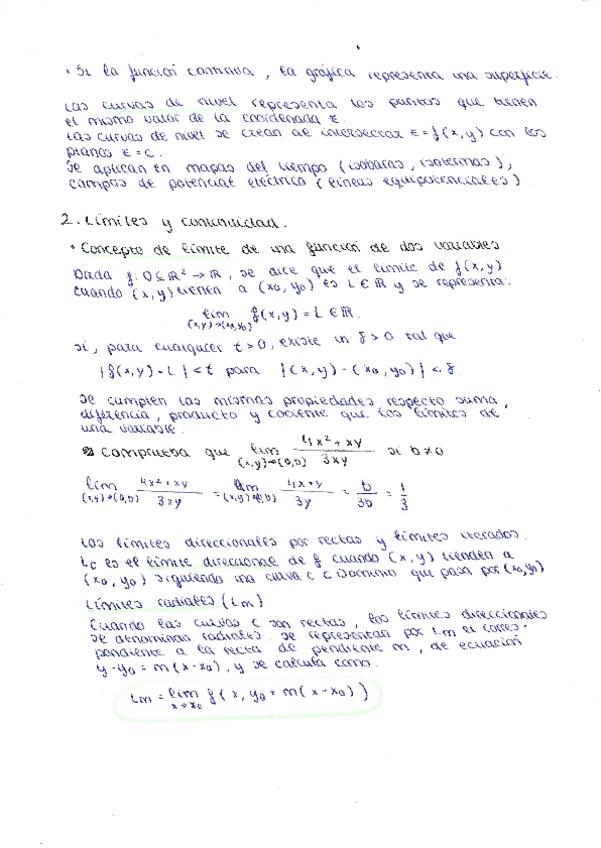 • Si la función continua, la gráfica representa una superficie.
Las curvas de nivel representa los puntos que tienen
el mismo valor de la coordenada z.
Las curvas de nivel se crean al intersectar z = f(x,y) con los
planos z = c.
Se aplican en mapas del tiempo (isobaras, isotermas),
campos de potencial eléctrico (líneas equipotenciales)
2. Límites y continuidad.
• Concepto de límite de una función de dos variables
Dada f: D ⊆ ℝ² → ℝ, se dice que el límite de f(x,y)
cuando (x,y) tienen a (x₀,y₀) es L ∈ ℝ y se representa:
lim (x,y)→(x₀,y₀) f(x,y) = L ∈ ℝ.
si, para cualquier ε > 0, existe un δ > 0 tal que
|f(x,y) - L| < ε para |(x,y) - (x₀,y₀)| < δ
Se cumplen las mismas propiedades respecto suma,
diferencia, producto y cociente que los límites de
una variable.
Comprueba que lim (x,y)→(0,b) 4x² + xy / 3xy si b ≠ 0
lim (x,y)→(0,b) 4x² + xy / 3xy = lim (x,y)→(0,b) 4x + y / 3y = b / 3b = 1 / 3
Los límites direccionales por rectas y límites iterados.
Lc es el límite direccional de f cuando (x,y) tienden a
(x₀,y₀) siguiendo una curva c ⊂ Dominio que pasa por (x₀,y₀)
Límites radiales (Lm)
Cuando las curvas c son rectas, los límites direccionales
se denominan radiales. Se representan por Lm el corres-
pondiente a la recta de pendiente m, de ecuación
y - y₀ = m(x - x₀), y se calcula como.
Lm = lim x→x₀ f(x, y₀ + m(x - x₀))